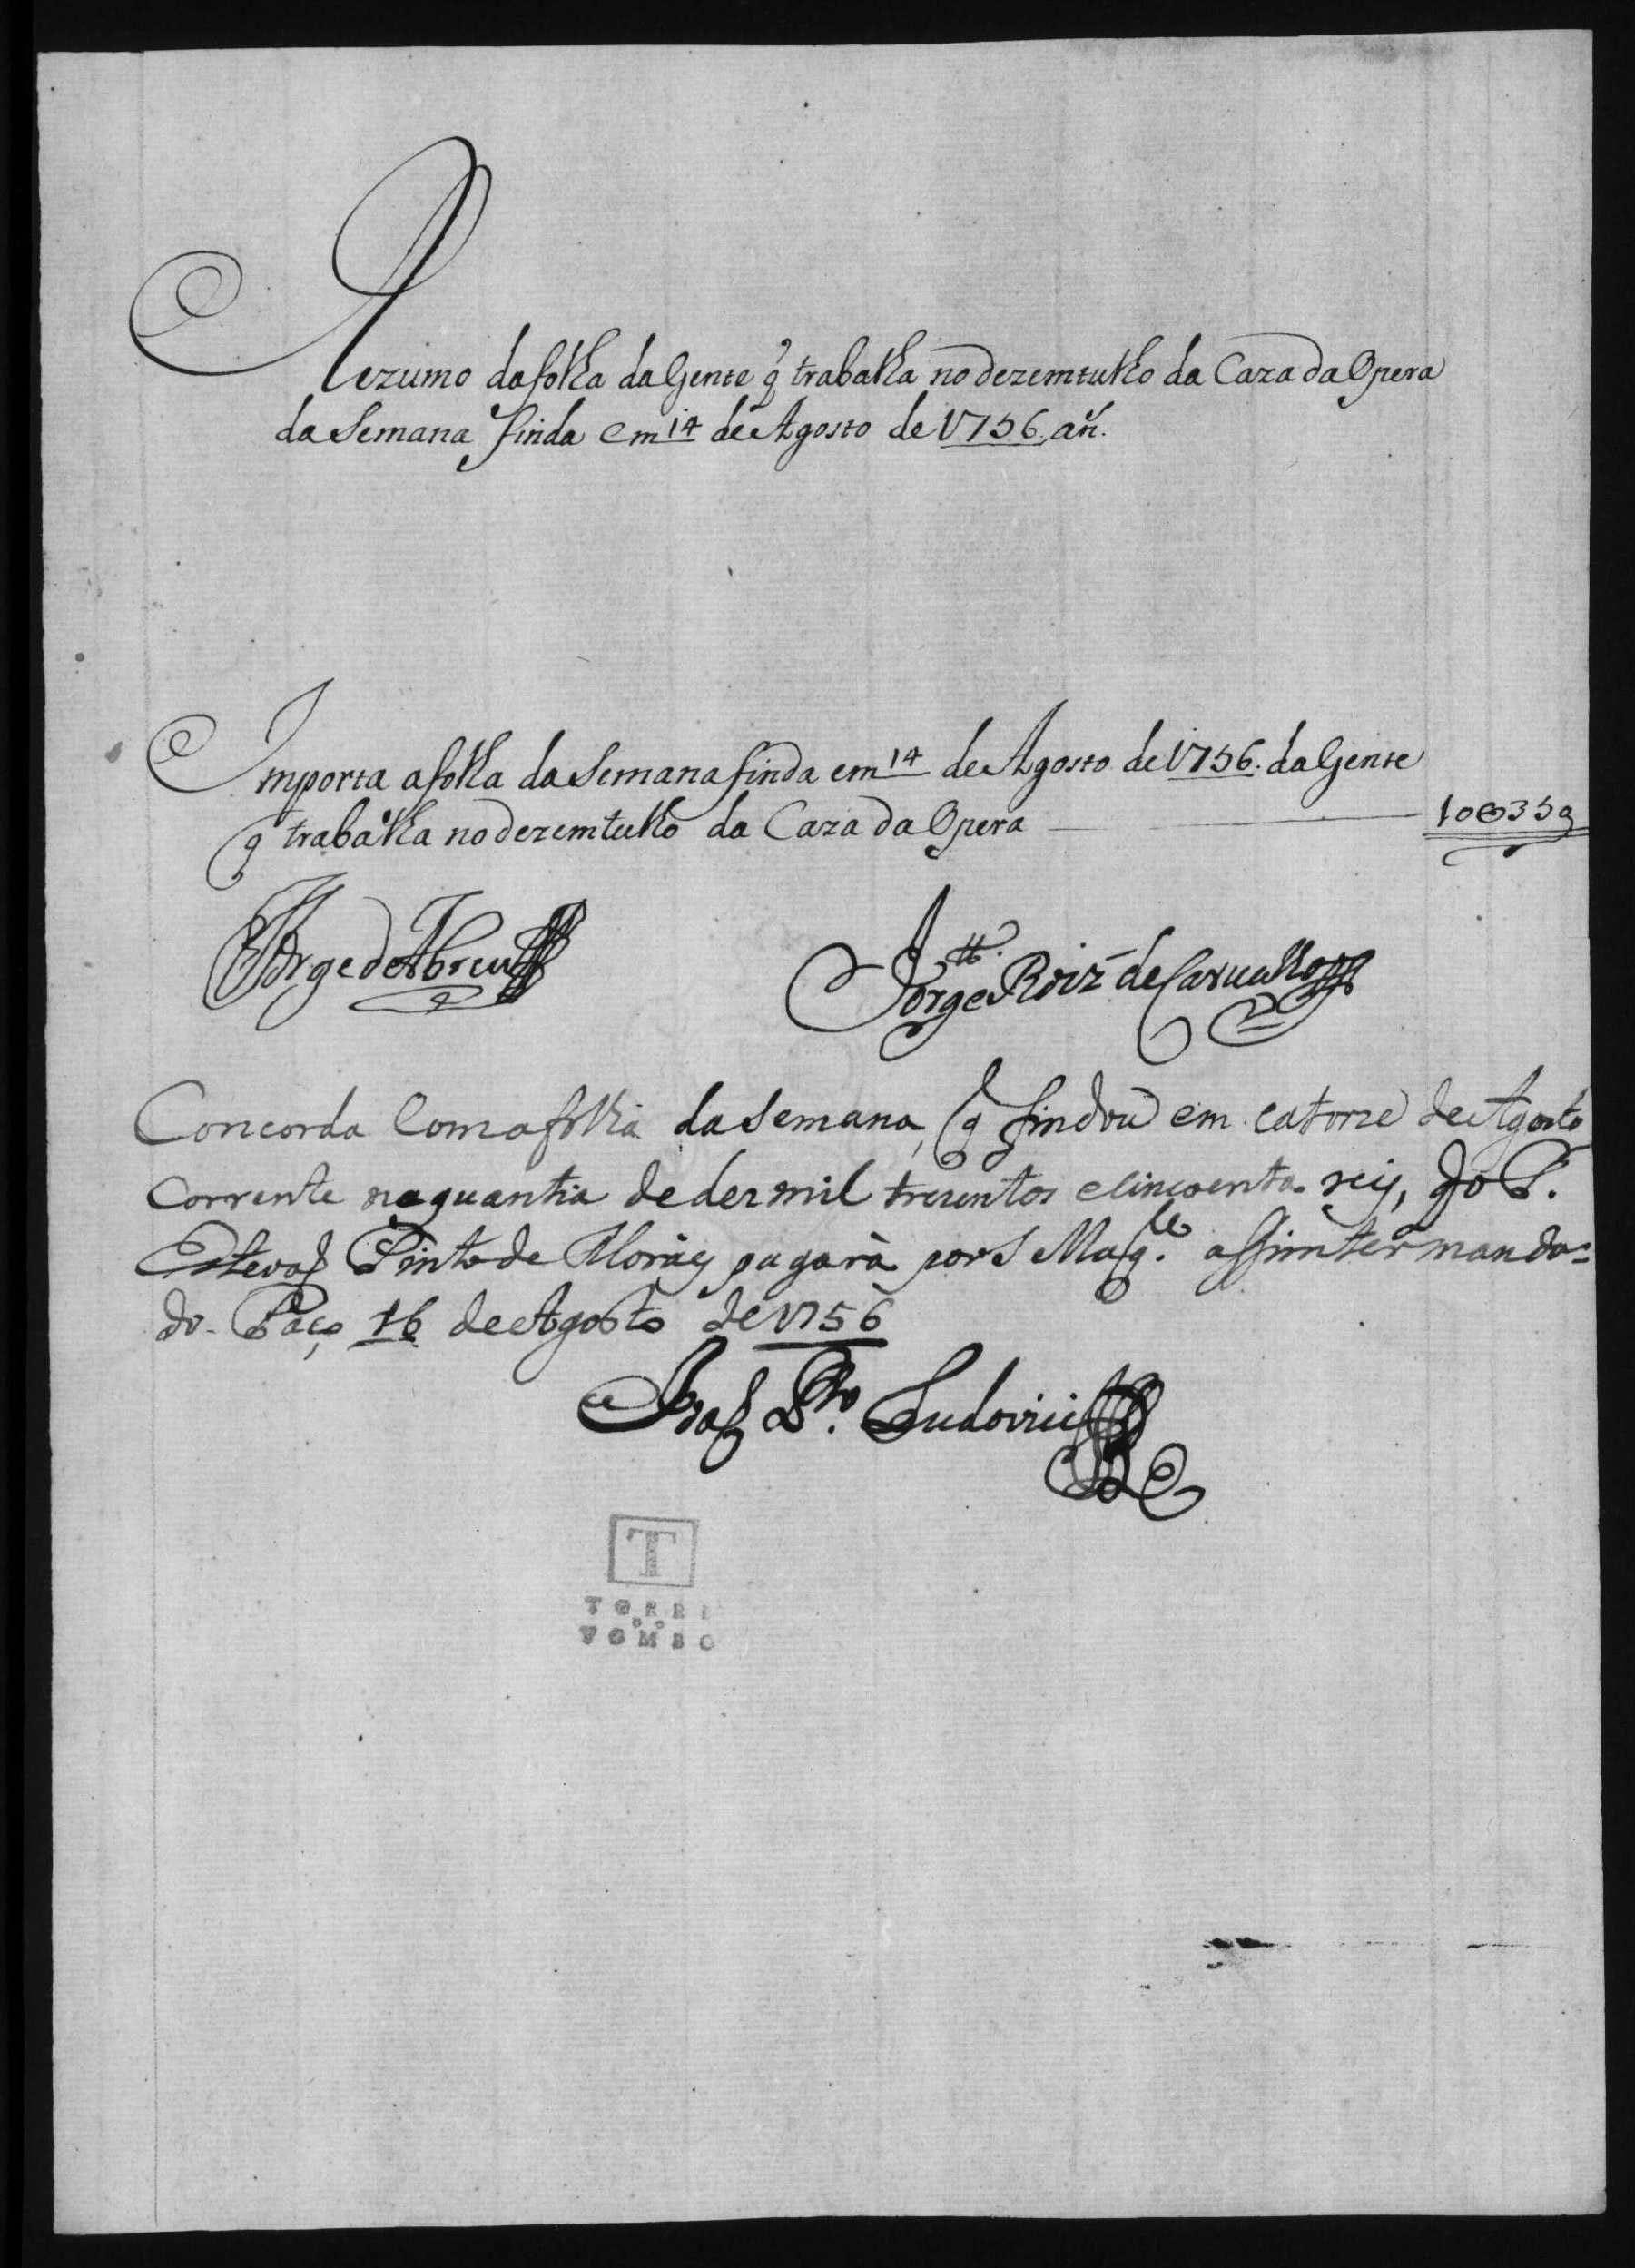 Rezumo da folha da Gente q̃ trabalha no dezemtulho da Caza da Opera
da Semana finda em 14 de Agosto de 1756. añ.
Importa a folha da Semana finda em 14 de Agosto de 1756. da Gente
q̃ trabalha no dezemtulho da Caza da Opera 10$350
Jorge de Abreu
Jorge Roiz de Carualho
Concorda Com a folha da Semana, q̃ findou em catorze de Agosto
Corrente na quantia de dez mil trezentos e Cincoenta reis, q̃ o P.
Estevaõ Pinto de Moráes pagará por S Mag.de assim ter manda=
do. Paço, 16 de Agosto de 1756
Joaõ P.ro Ludovici
T
TORRE
DO
TOMBO